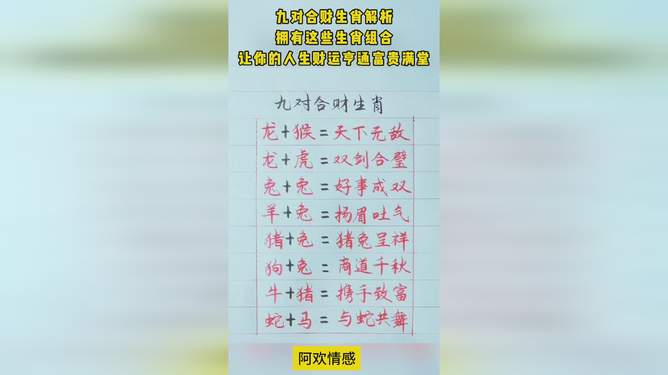 九对合财生肖解析
拥有这些生肖组合
让你的人生财运亨通富贵满堂
九对合财生肖
龙+猴=天下无敌
龙+虎=双剑合璧
兔+兔=好事成双
羊+兔=扬眉吐气
猪+兔=猪兔呈祥
狗+兔=商道千秋
牛+猪=携手致富
蛇+马=与蛇共舞
阿欢情感